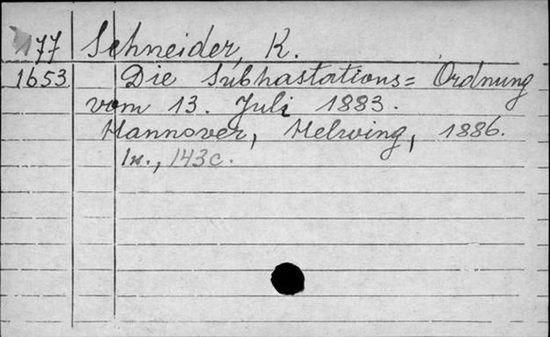 77 Schneider, K.
1653 Die Subhastations= Ordnung
vom 13. Juli 1883.
Hannover, Helwing, 1886.
1н., 143с.